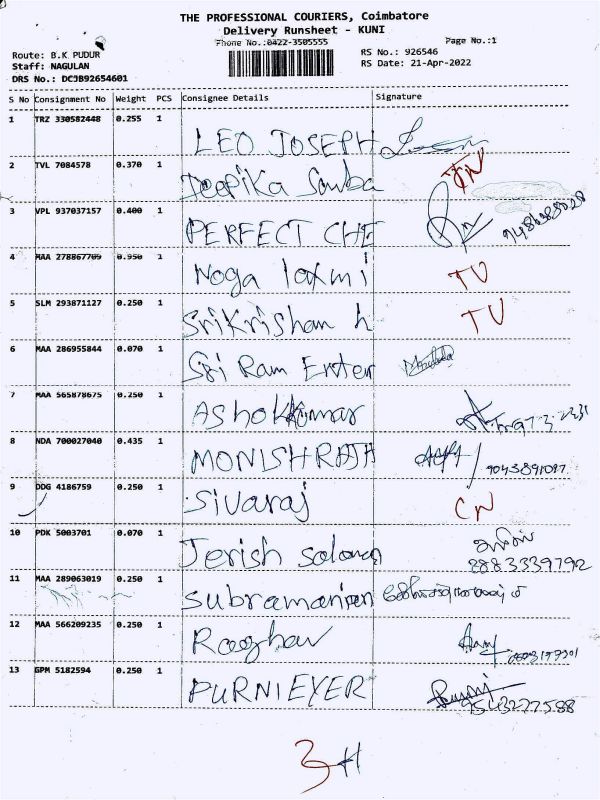 THE PROFESSIONAL COURIERS, Coimbatore
Delivery Runsheet - KUNI
Phone No.:0422-3505555
Page No.:1
Route: B.K.PUDUR
RS No.: 926546
Staff: NAGULAN
RS Date: 21-Apr-2022
DRS No.: DCJB92654601
S No Consignment No Weight PCS Consignee Details Signature
1 TRZ 330582448 0.255 1 LEO JOSEPH
2 TVL 7084578 0.370 1 Deepika
3 VPL 937037157 0.400 1 PERFECT CHE
4 MAA 278867709 0.950 1 Noga laxmi TU
5 SLM 293871127 0.250 1 SriKrishan h TU
6 MAA 286955844 0.070 1 Sri Ram Enter
7 MAA 565878675 0.250 1 Ashokkumar
8 NDA 700027040 0.435 1 MONISHRAJA
9 DDG 4186759 0.250 1 Sivaraj CN
10 PDK 5003701 0.070 1 Jerish solomon
8883339792
11 MAA 289063019 0.250 1 Subramanian
12 MAA 566209235 0.250 1 Raghav
13 GPM 5182594 0.250 1 PURNIEYER
9543277588